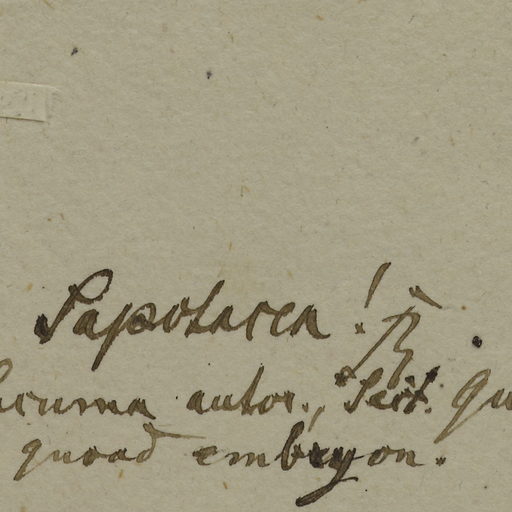 Sapotacea!
Lucuma autor., Sect. Qu
quoad embryon.